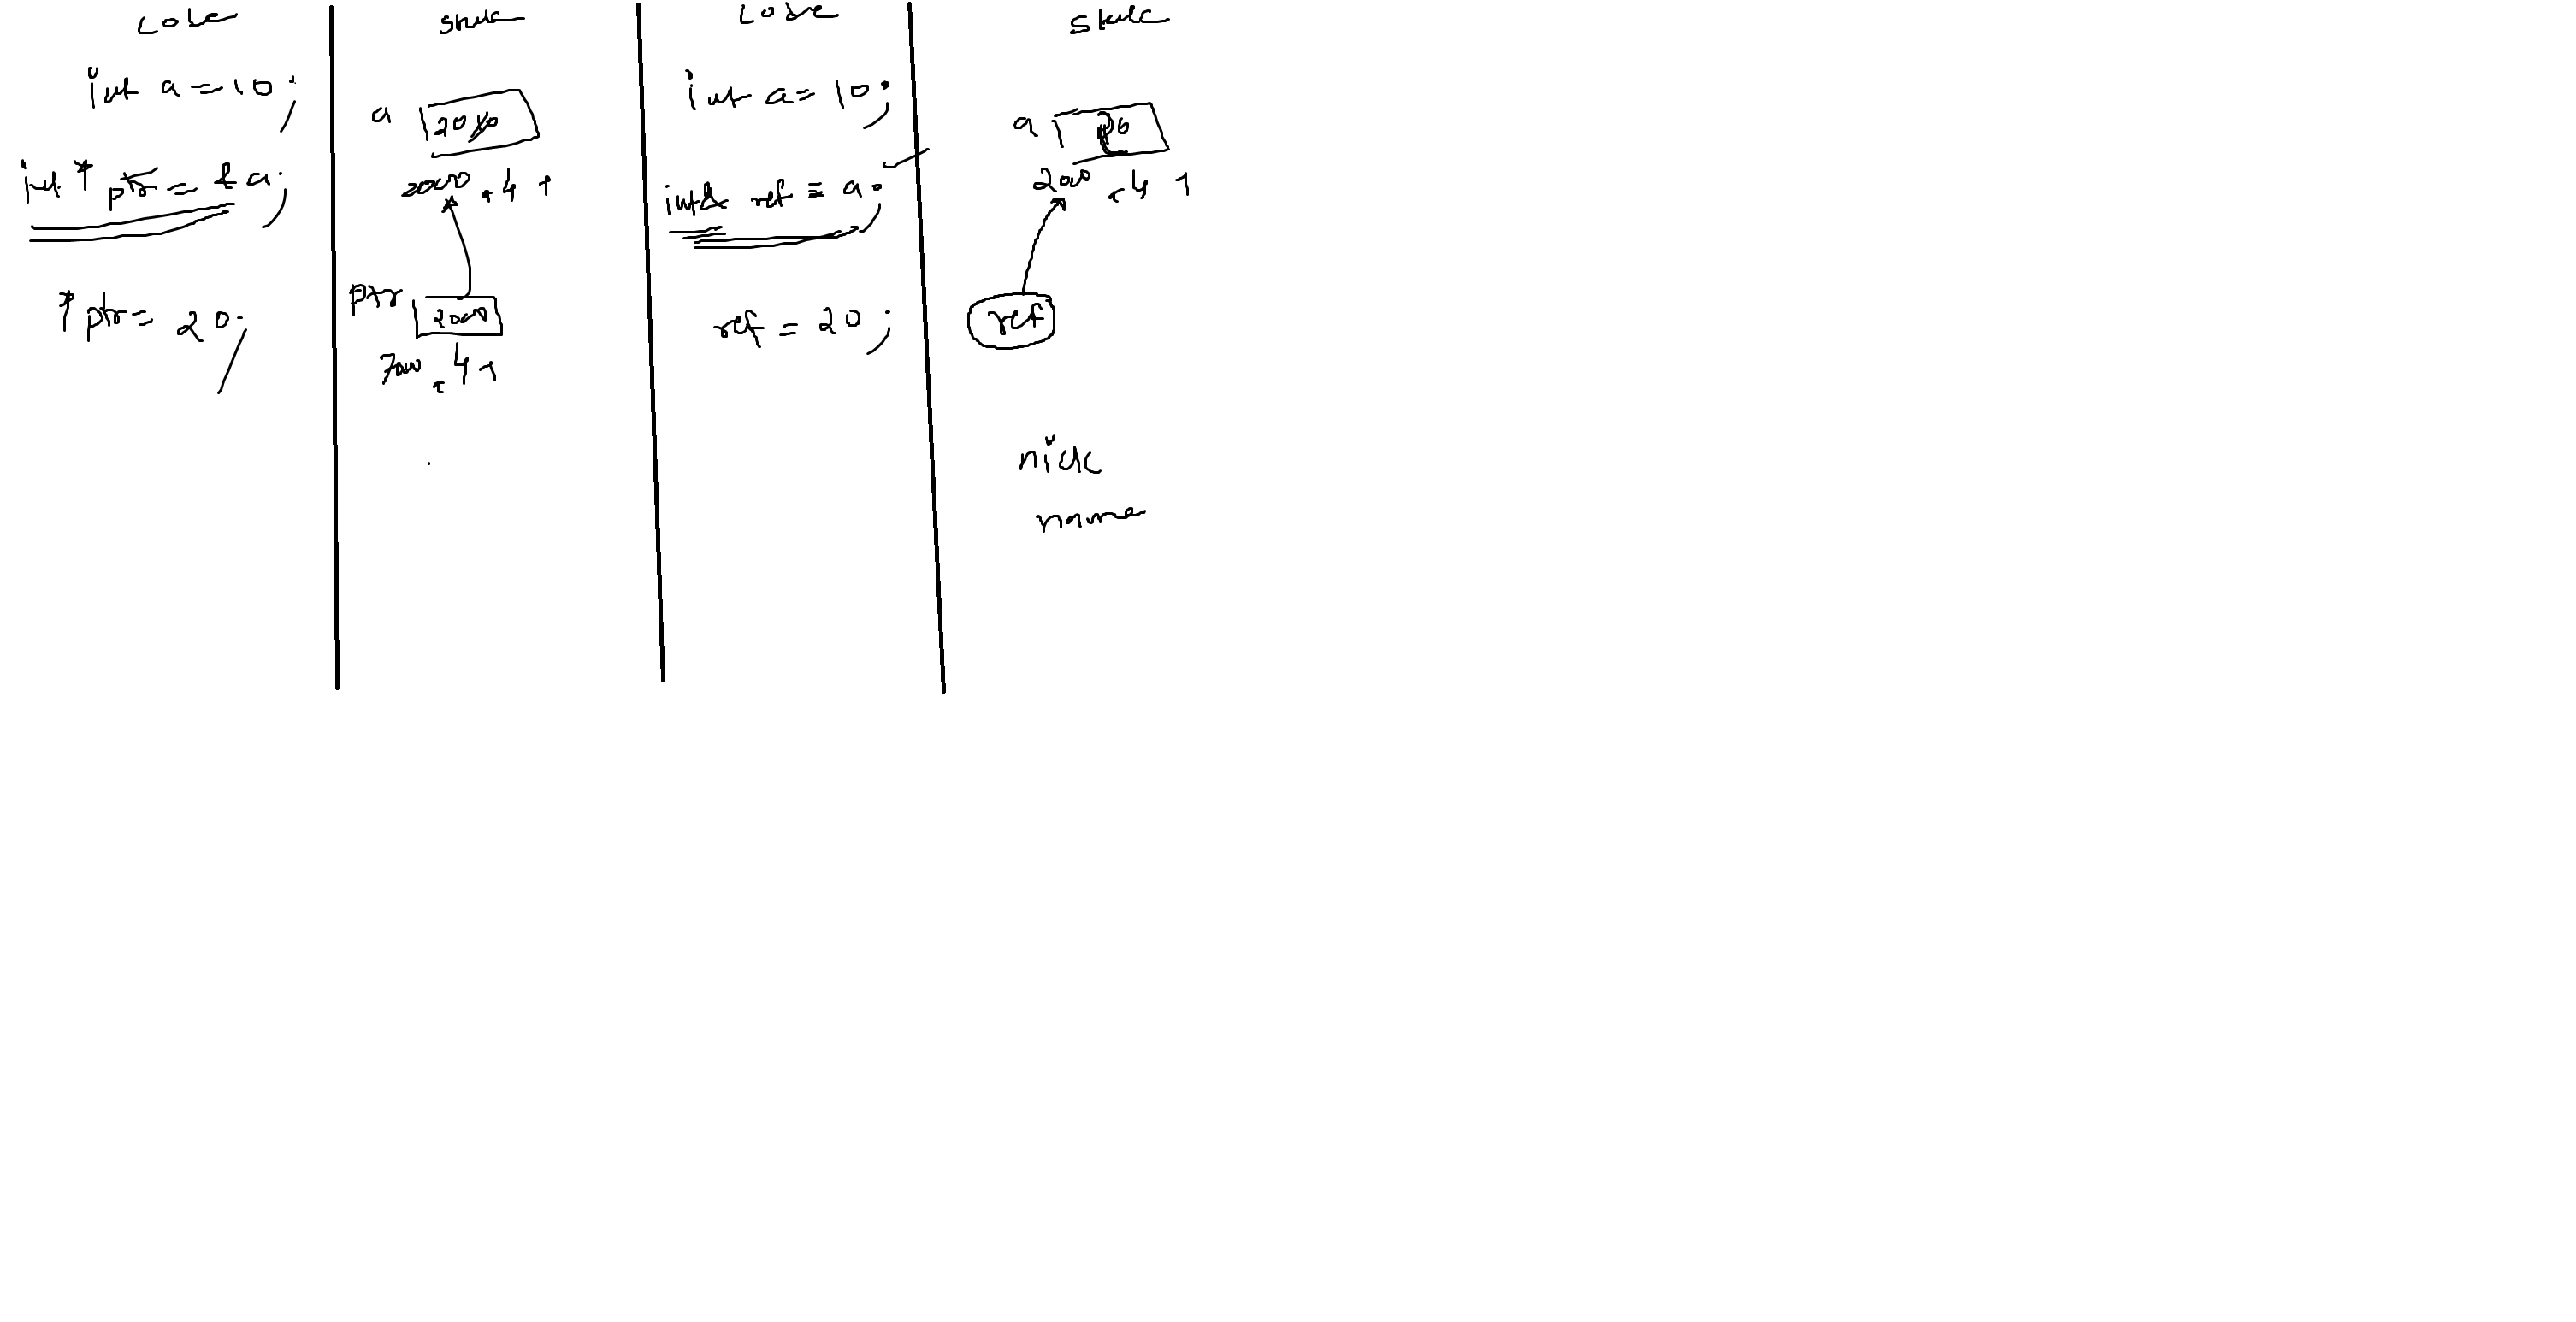 code
int a = 10;
int * ptr = & a;
* ptr = 20;
stack
a 20 10
2000 4
ptr 2000
7000 4
code
int a = 10;
int& ref = a;
ref = 20;
stack
a
2000 4
ref
nick
name